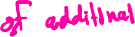 of additinal